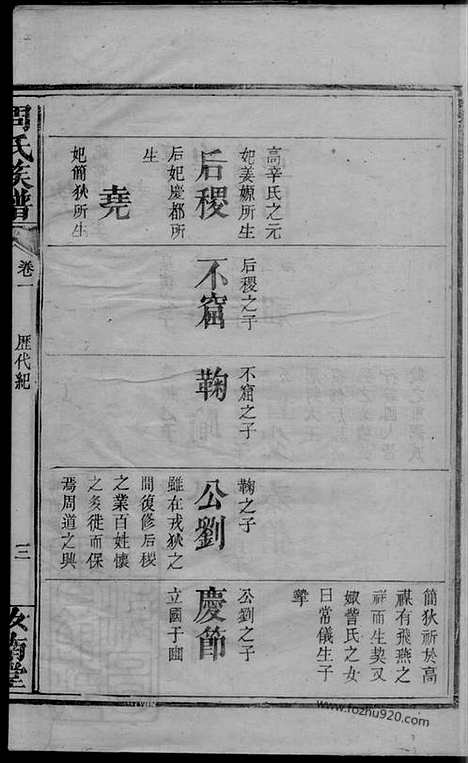 高辛氏之元
妃姜嫄所生
后稷
后妃慶都所
生
堯
妃簡狄所生
后稷之子
不窟
不窟之子
鞠
鞠之子
公劉
雖在戎狄之
間復修后稷
之業百姓懷
之多徙而保
焉周道之興
簡狄祈於高
禖有飛燕之
祥而生契又
娵訾氏之女
曰常儀生子
摯
公劉之子
慶節
立國于豳
周氏族譜
卷一
歷代紀
三
汝南堂
www.fozhu920.com